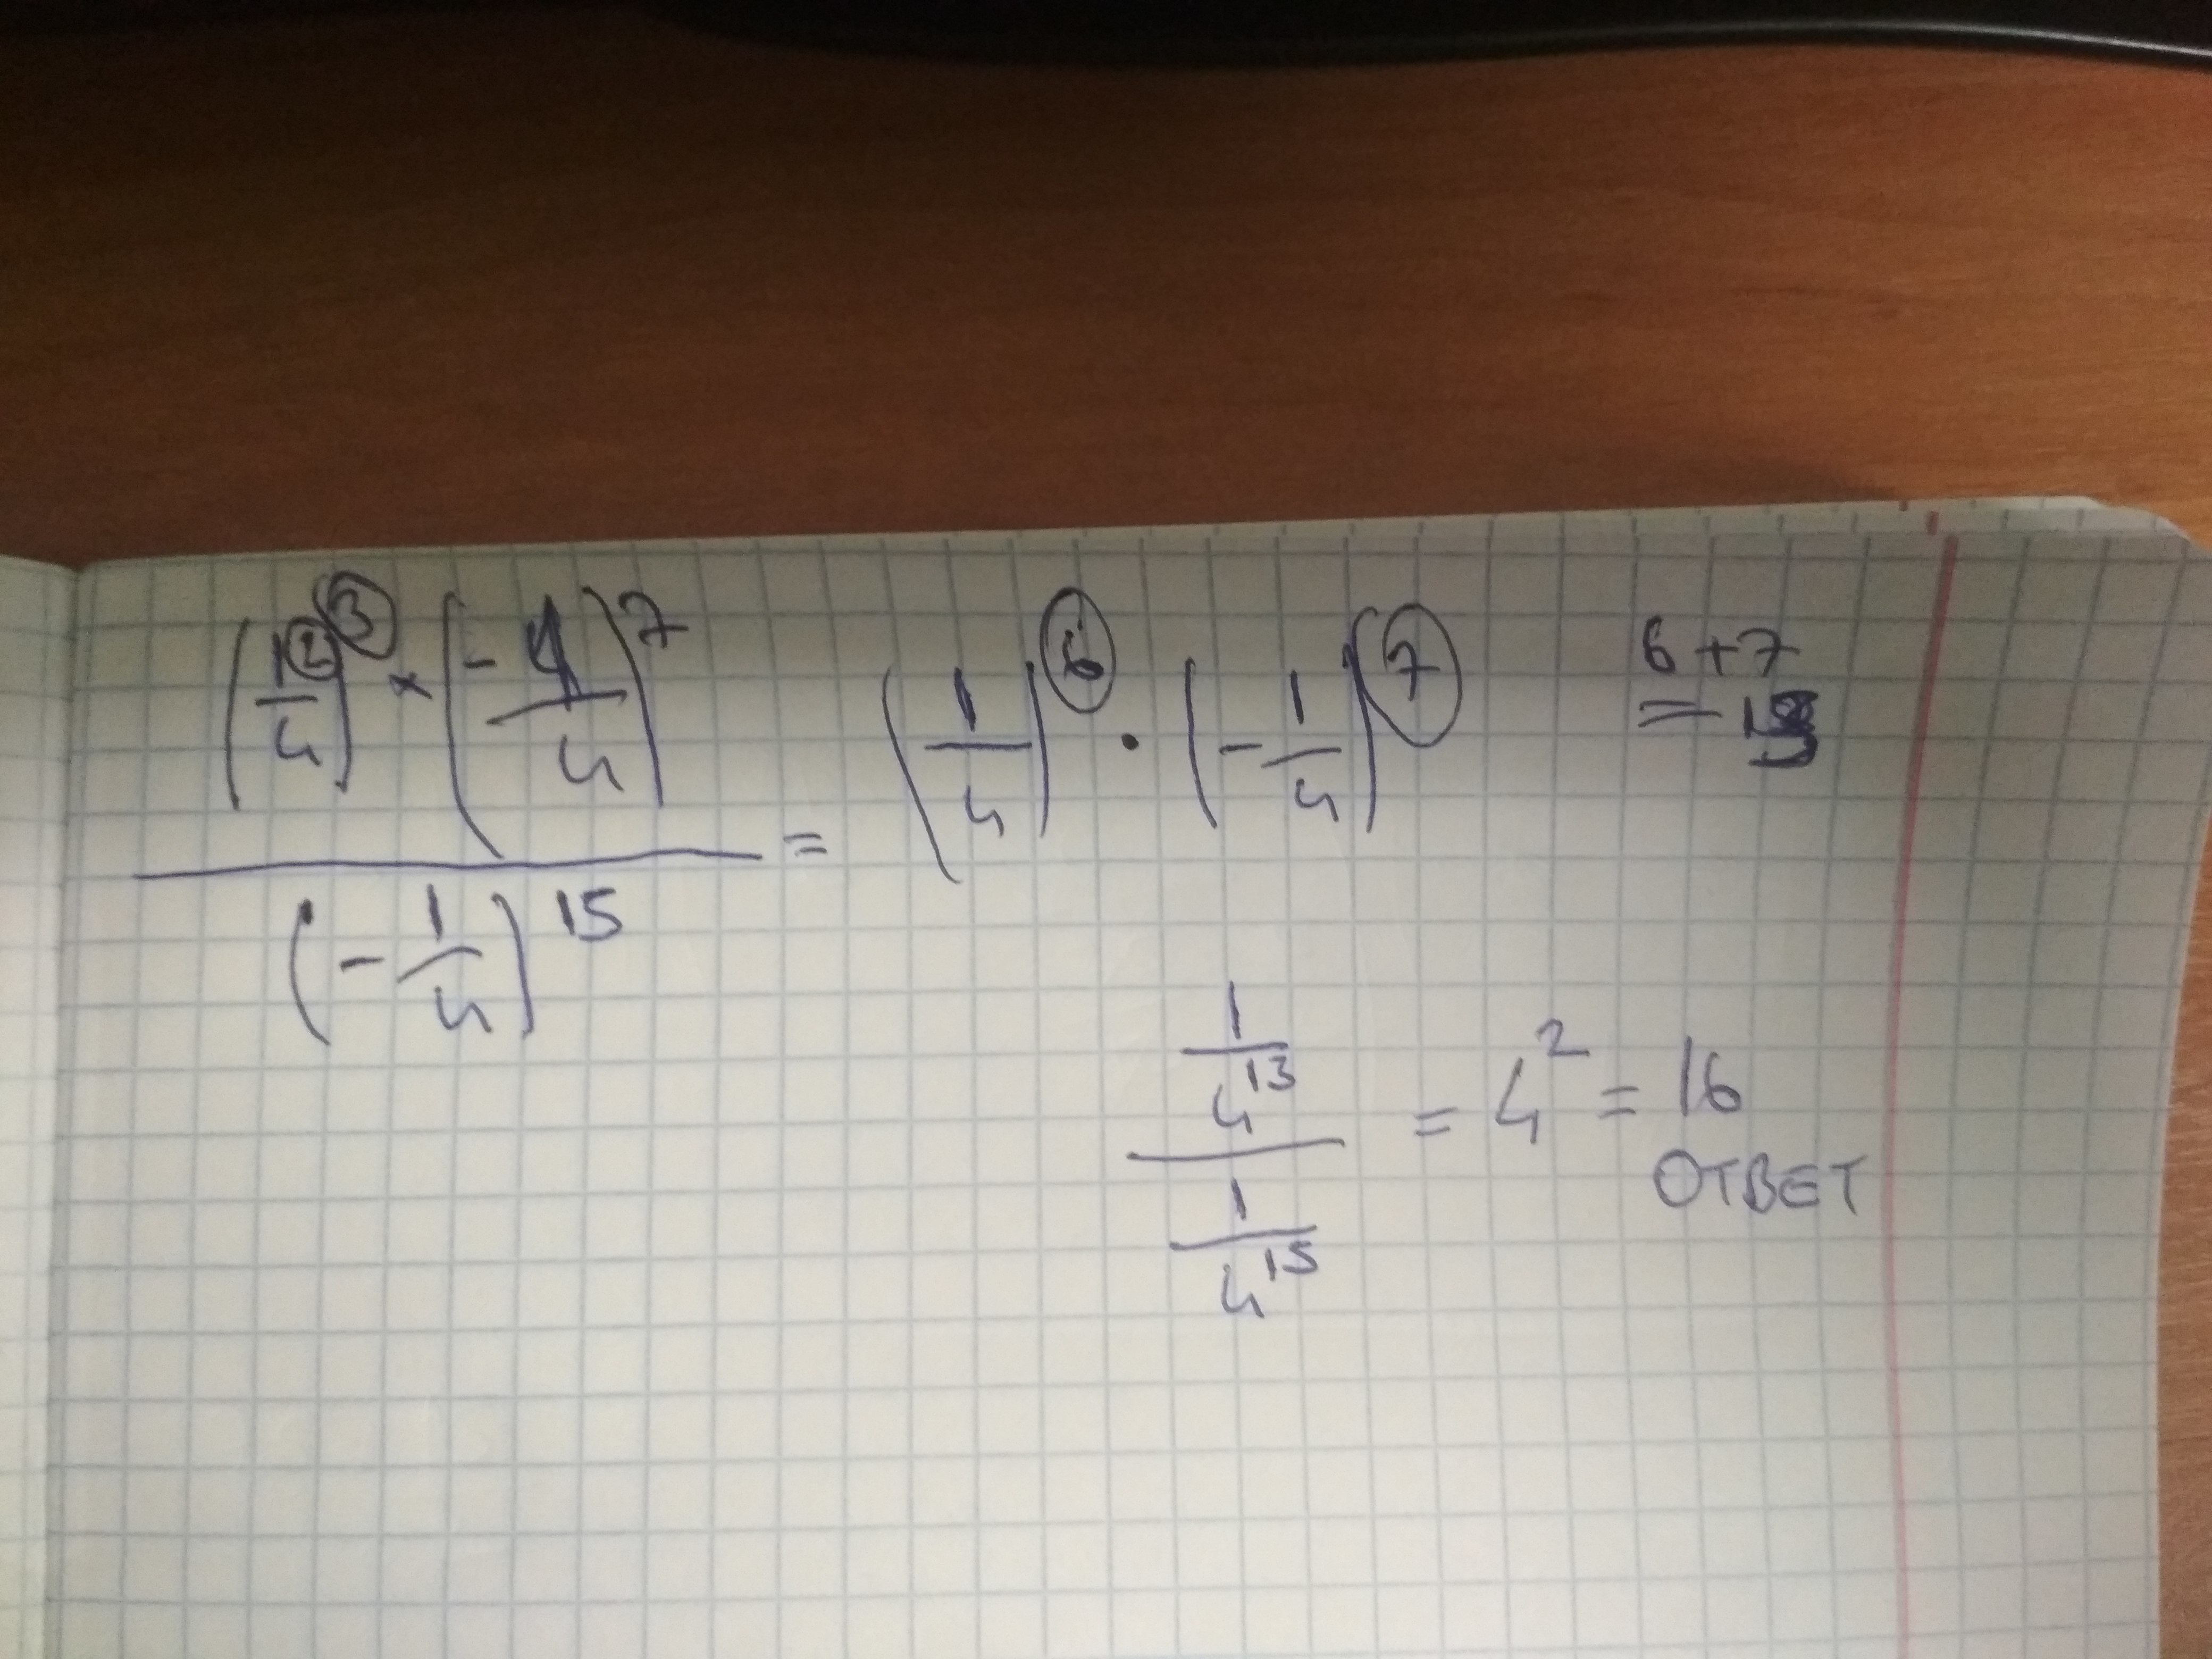 (1²/4)³ × (-1/4)⁷
(-1/4)¹⁵
= (1/4)⁶ · (-1/4)⁷
6+7
= 13
1/4¹³
1/4¹⁵
= 4² = 16
ОТВЕТ